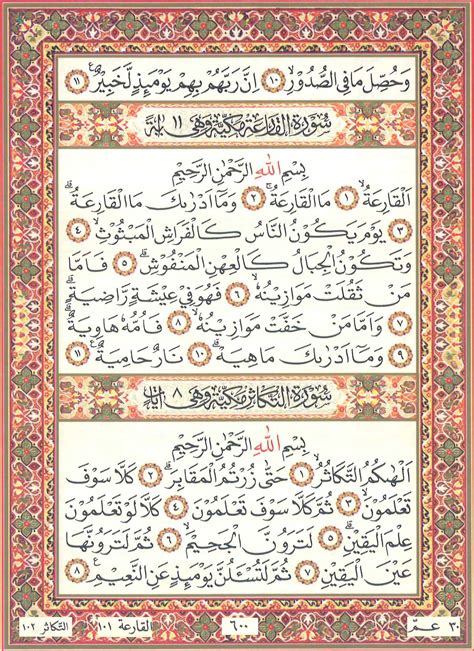 وَحُصِّلَ مَا فِي الصُّدُورِۙ ١٠ اِنَّ رَبَّهُمْ بِهِمْ يَوْمَئِذٍ لَخَبِيرٌ ١١
سُورَةُ الْقَارِعَةِ مَكِّيَّةٌ وَهِيَ ١١ اٰيَةً
بِسْمِ اللّٰهِ الرَّحْمٰنِ الرَّحِيمِ
اَلْقَارِعَةُۙ ١ مَا الْقَارِعَةُۚ ٢ وَمَٓا اَدْرٰيكَ مَا الْقَارِعَةُۜ
٣ يَوْمَ يَكُونُ النَّاسُ كَالْفَرَاشِ الْمَبْثُوثِۙ ٤
وَتَكُونُ الْجِبَالُ كَالْعِهْنِ الْمَنْفُوشِۜ ٥ فَاَمَّا
مَنْ ثَقُلَتْ مَوَازِينُهُۙ ٦ فَهُوَ فِي عِيشَةٍ رَاضِيَةٍۜ
٧ وَاَمَّا مَنْ خَفَّتْ مَوَازِينُهُۙ ٨ فَاُمُّهُ هَاوِيَةٌۜ
٩ وَمَٓا اَدْرٰيكَ مَا هِيَهْۜ ١٠ نَارٌ حَامِيَةٌ ١١
سُورَةُ التَّكَاثُرِ مَكِّيَّةٌ وَهِيَ ٨ اٰيَاتٍ
بِسْمِ اللّٰهِ الرَّحْمٰنِ الرَّحِيمِ
اَلْهٰيكُمُ التَّكَاثُرُۙ ١ حَتّٰى زُرْتُمُ الْمَقَابِرَۜ ٢ كَلَّا سَوْفَ
تَعْلَمُونَۙ ٣ ثُمَّ كَلَّا سَوْفَ تَعْلَمُونَۜ ٤ كَلَّا لَوْ تَعْلَمُونَ
عِلْمَ الْيَقِينِۜ ٥ لَتَرَوُنَّ الْجَحِيمَۙ ٦ ثُمَّ لَتَرَوُنَّهَا
عَيْنَ الْيَقِينِۙ ٧ ثُمَّ لَتُسْـَٔلُنَّ يَوْمَئِذٍ عَنِ النَّعِيمِ ٨
٣٠ عمّ
٦٠٠
القارعة ١٠١
التكاثر ١٠٢